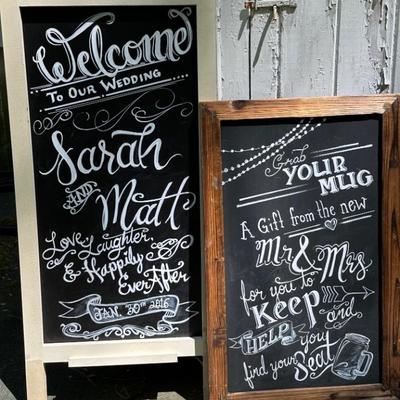 Welcome
To Our Wedding
Sarah
AND
Matt
Love, Laughter,
& Happily
Ever After
JAN. 30TH 2016
Grab
YOUR
MUG
A Gift from the new
Mr & Mrs.
for you to
Keep and
HELP you
find your Seat